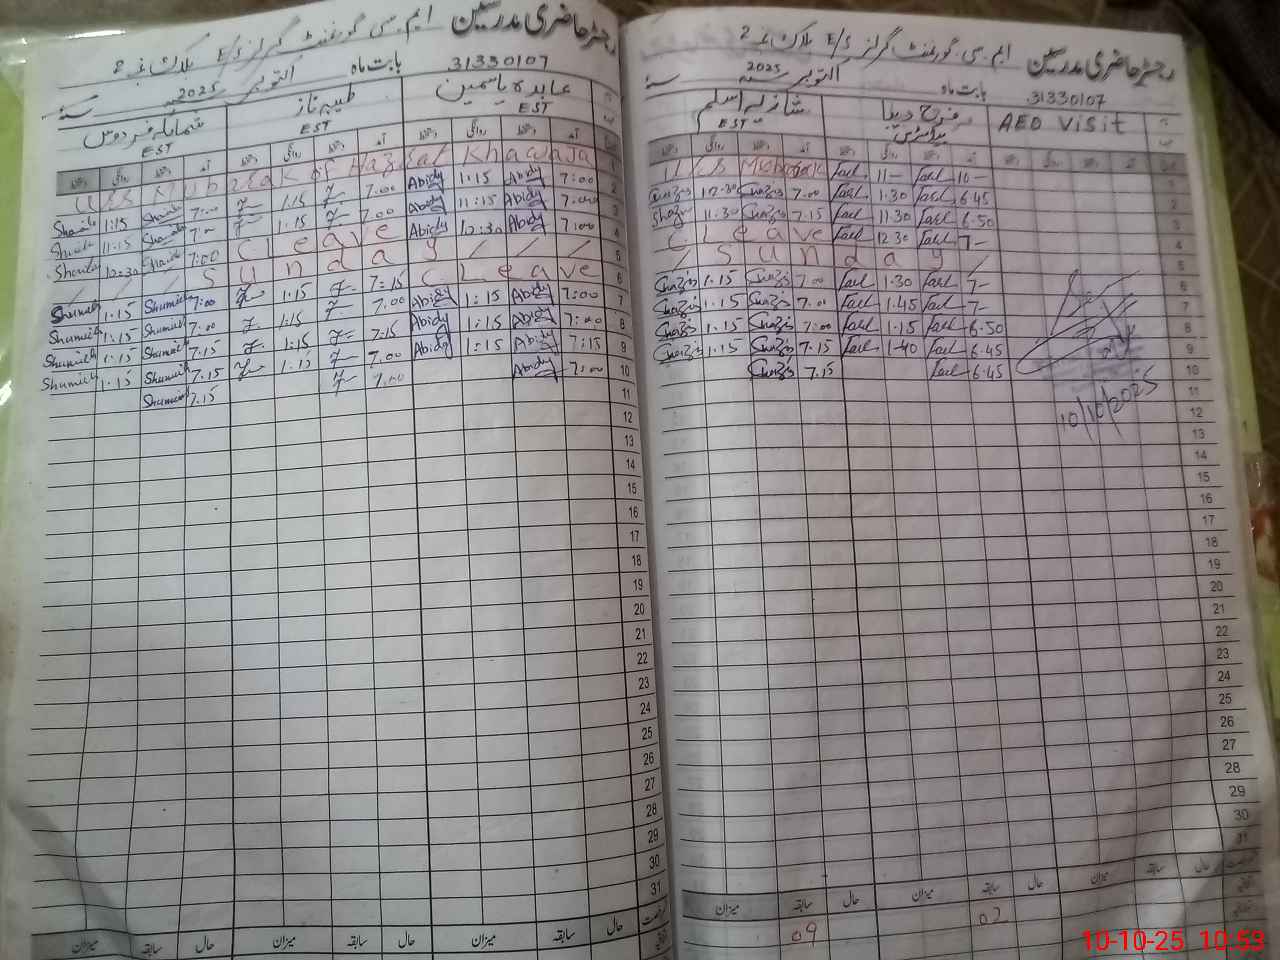 رجسٹر حاضری مدرسین ایم.سی گورنمنٹ گرلز E/S بلاک نمبر 2
31330107 بابت ماہ اکتوبر سنہ 2025
عابدہ یاسمین طیبہ ناز شمائلہ فردوس
EST EST EST
آمد دستخط روانگی دستخط آمد دستخط روانگی دستخط آمد دستخط روانگی دستخط
1 Urs Mubarak of Hazrat Khawaja
2 7:00 Abidy 1:15 Abidy 7.00 1.15 7:00 Shumila 1:15
3 7:00 Abidy 11:15 Abidy 7.00 1.15 7:00 Shumila 11:15
4 7:00 Abidy 12:30 Abidy C Leave 7:00 Shumila 12:30
5 Sunday
6 C Leave 7:15 1.15 7:00 Shumila 1.15
7 7:00 Abidy 1:15 Abidy 7.00 1:15 7.00 Shumila 1.15
8 7:00 Abidy 1:15 Abidy 7.15 1:15 7.15 Shumila 1.15
9 7:15 Abidy 1:15 Abidy 7.00 1.15 7.15 Shumila 1.15
10 7:00 Abidy 7.00 7.15 Shumila
11
12
13
14
15
16
17
18
19
20
21
22
23
24
25
26
27
28
29
30
31
حال سابقہ میزان حال سابقہ میزان حال سابقہ میزان
رجسٹر حاضری مدرسین ایم.سی گورنمنٹ گرلز E/S بلاک نمبر 2
31330107 بابت ماہ اکتوبر سنہ 2025
AEO Visit فرح دیبا شازیہ اسلم
EST
آمد دستخط روانگی دستخط آمد دستخط روانگی دستخط
1 10- 11- Urs Mubarak
2 6.45 1.30 7.00 12.30
3 6.50 11.30 7.15 11.30
4 7- 12.30 C Leave
5 Sunday
6 7- 1.30 7.00 1.15
7 7- 1.45 7.00 1.15
8 6.50 1.15 7:00 1.15
9 6.45 1.40 7.15 1.15
10 6.45 7.15
11 10/10/2025
12
13
14
15
16
17
18
19
20
21
22
23
24
25
26
27
28
29
30
31
حال سابقہ میزان حال سابقہ میزان حال سابقہ میزان
02 09
10-10-25 10:53